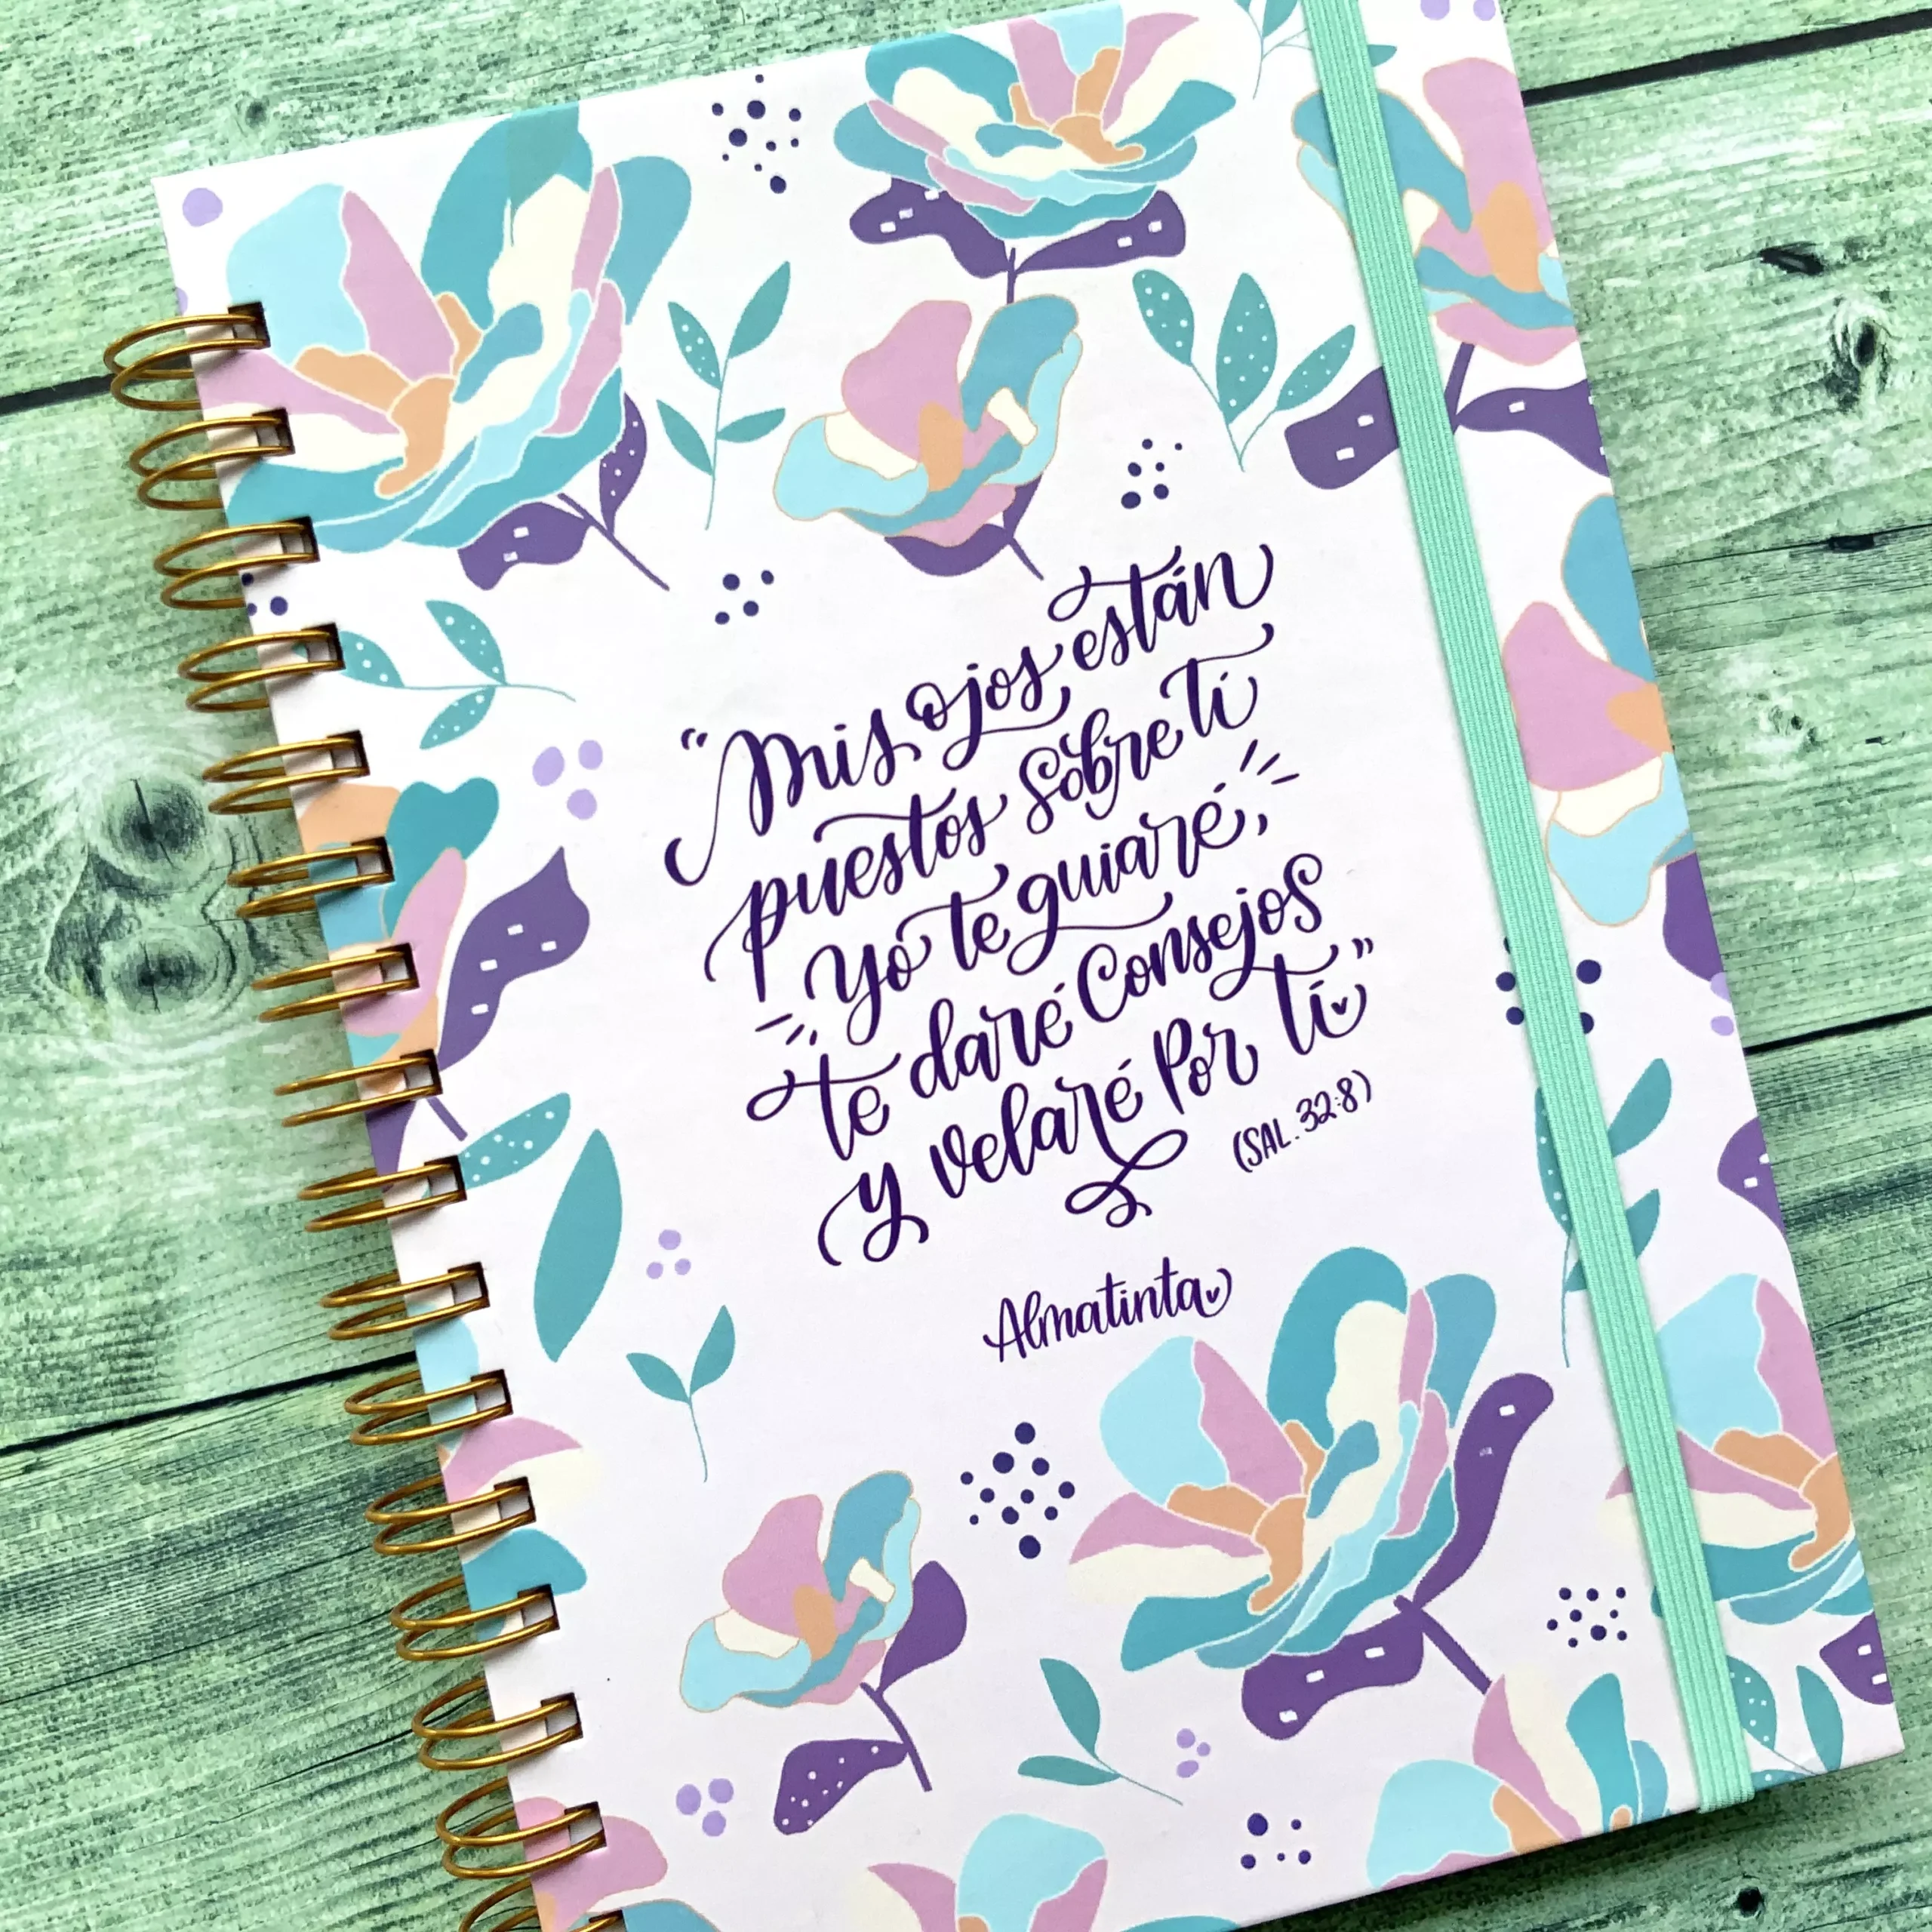 “Mis ojos están
puestos sobre tí
Yo te guiaré,
te daré Consejos
y velaré Por tí”
(SAL. 32:8)
Almatinta